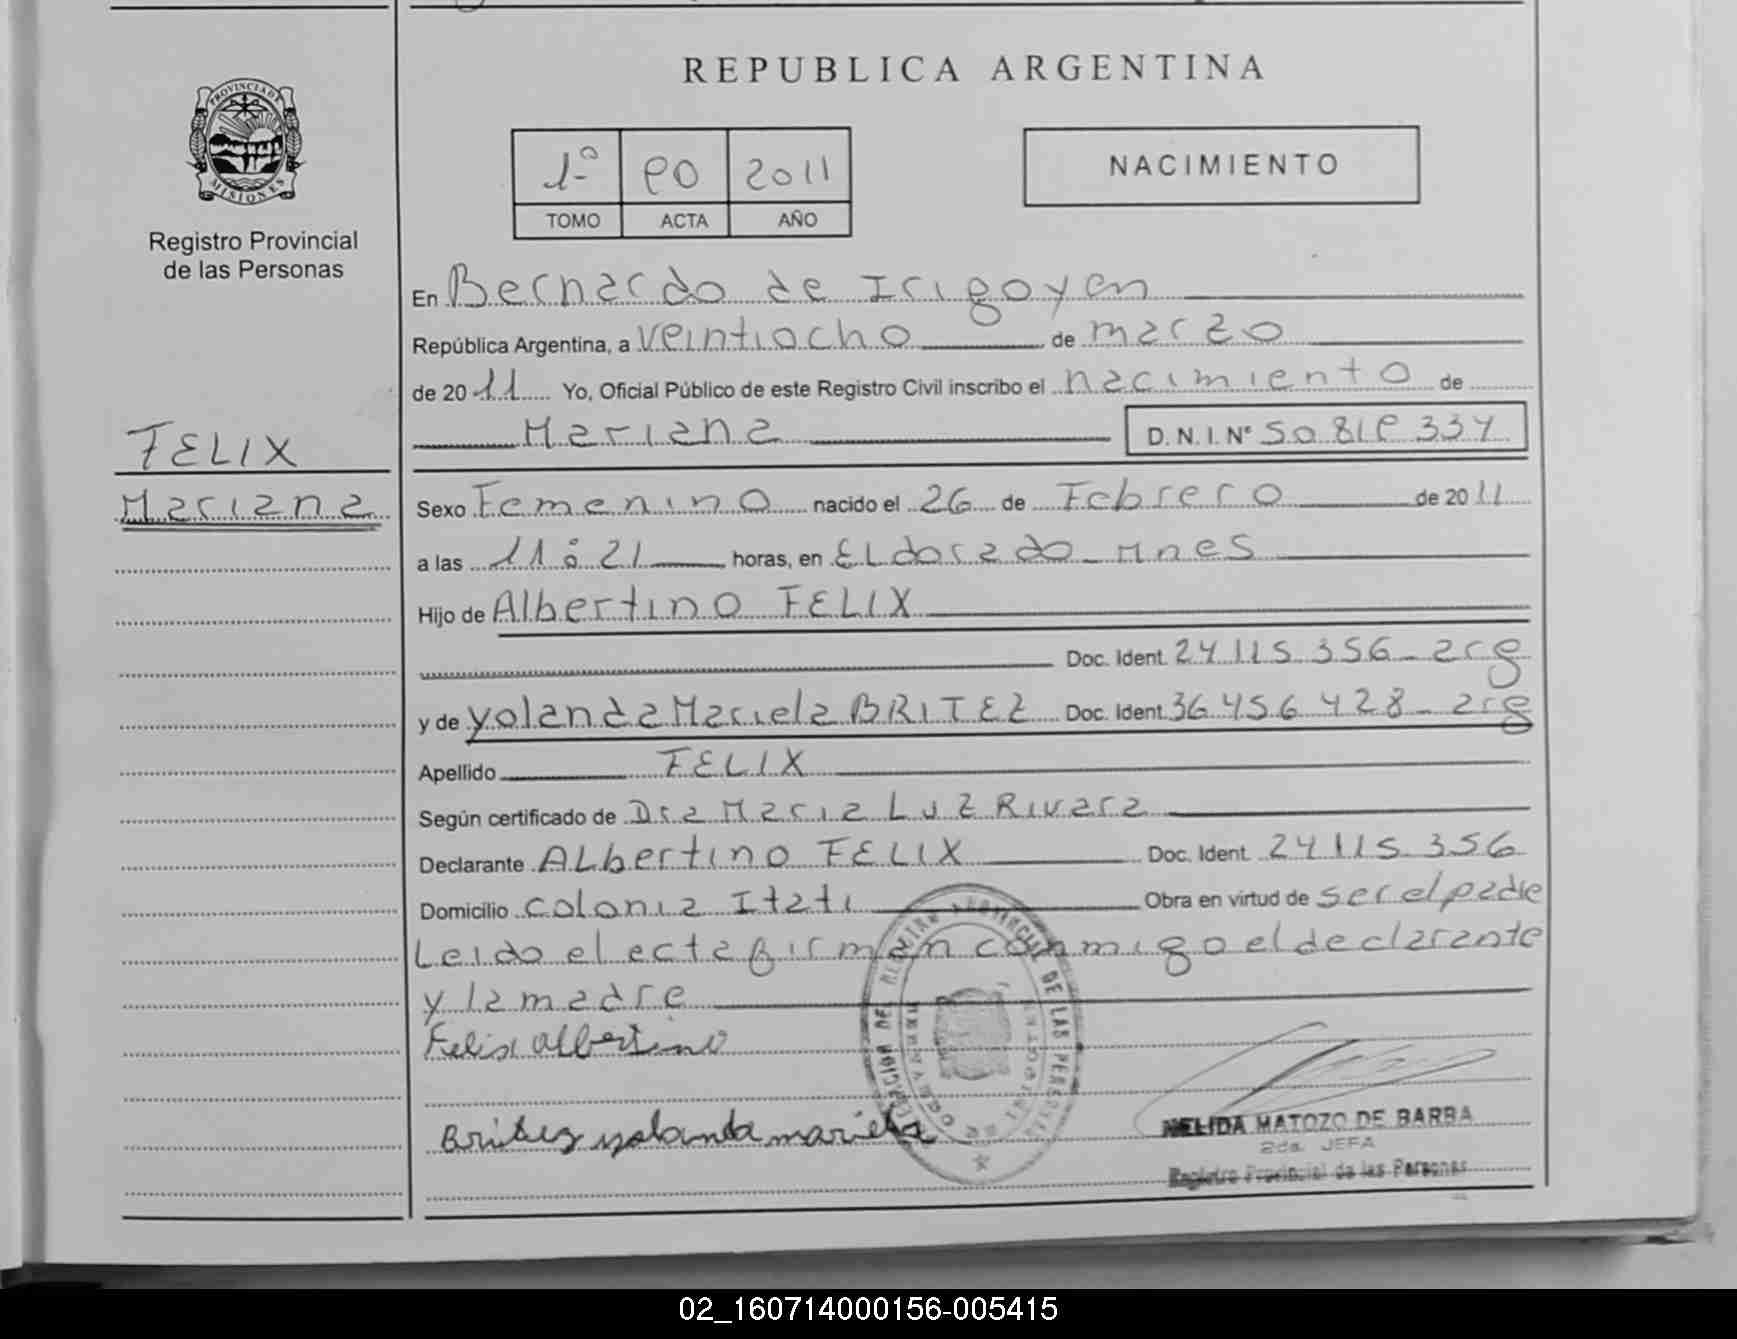 REPUBLICA ARGENTINA
PROVINCIA DE
MISIONES
Registro Provincial
de las Personas
1º 90 2011
TOMO ACTA AÑO
NACIMIENTO
En Bernardo de Irigoyen
República Argentina, a veintiocho de marzo
de 2011 Yo, Oficial Público de este Registro Civil inscribo el nacimiento de
Mariana D.N.I. Nº 50.819.334
FELIX
Mariana
Sexo Femenino nacido el 26 de Febrero de 2011
a las 11:21 horas, en ELdorado Mnes
Hijo de Albertino FELIX
Doc. Ident. 24.115.356 - arg
y de yolanda Mariela BRITEZ Doc. Ident. 36.456.428 - arg
Apellido FELIX
Según certificado de Dra Maria Luz Rivara
Declarante ALbertino FELIX Doc. Ident. 24.115.356
Domicilio colonia Itati Obra en virtud de ser el padre
Leido el acta firman conmigo el declarante
y la madre
Felix albertino
Britez yolanda mariela
NELIDA MATOZO DE BARBA
2da. JEFA
Registro Provincial de las Personas
02_160714000156-005415